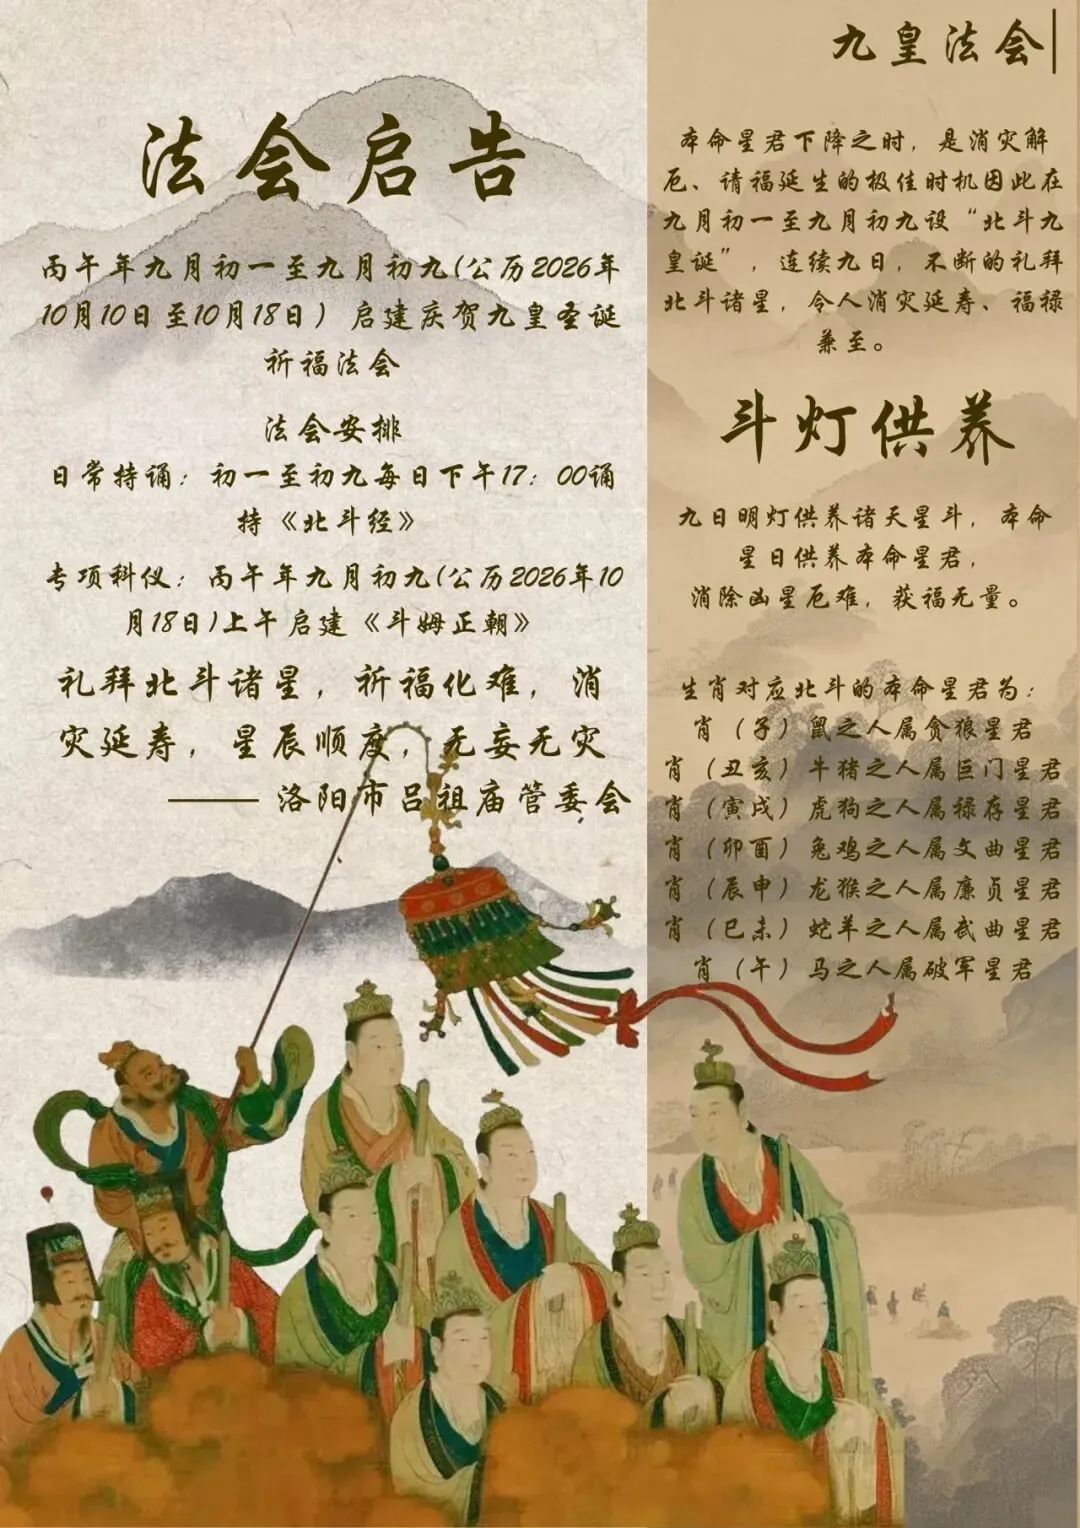 法会启告
丙午年九月初一至九月初九(公历2026年
10月10日至10月18日）启建庆贺九皇圣诞
祈福法会
法会安排
日常持诵：初一至初九每日下午17：00诵
持《北斗经》
专项科仪：丙午年九月初九(公历2026年10
月18日)上午启建《斗姆正朝》
礼拜北斗诸星，祈福化难，消
灾延寿，星辰顺度，无妄无灾
—— 洛阳市吕祖庙管委会
九皇法会
本命星君下降之时，是消灾解
厄、请福延生的极佳时机因此在
九月初一至九月初九设“北斗九
皇诞”，连续九日，不断的礼拜
北斗诸星，令人消灾延寿、福禄
兼至。
斗灯供养
九日明灯供养诸天星斗，本命
星日供养本命星君，
消除凶星厄难，获福无量。
生肖对应北斗的本命星君为：
肖（子）鼠之人属贪狼星君
肖（丑亥）牛猪之人属巨门星君
肖（寅戌）虎狗之人属禄存星君
肖（卯酉）兔鸡之人属文曲星君
肖（辰申）龙猴之人属廉贞星君
肖（巳未）蛇羊之人属武曲星君
肖（午）马之人属破军星君